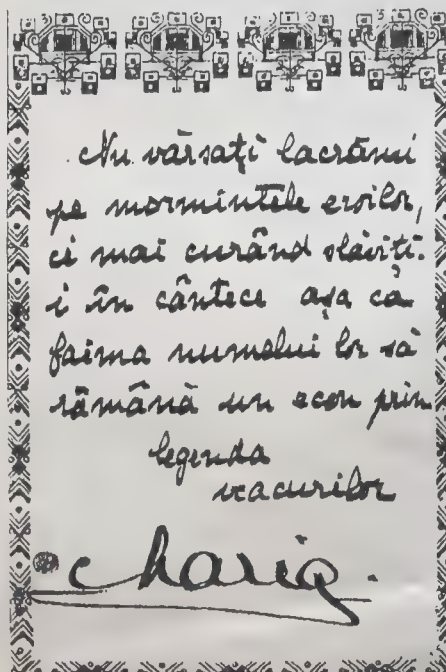 Nu vărsați lacrămi
pe mormintele eroilor,
ci mai curând slăviți-
i în cântece așa ca
faima numelui lor să
rămână un ecou prin
legenda
veacurilor
Maria.